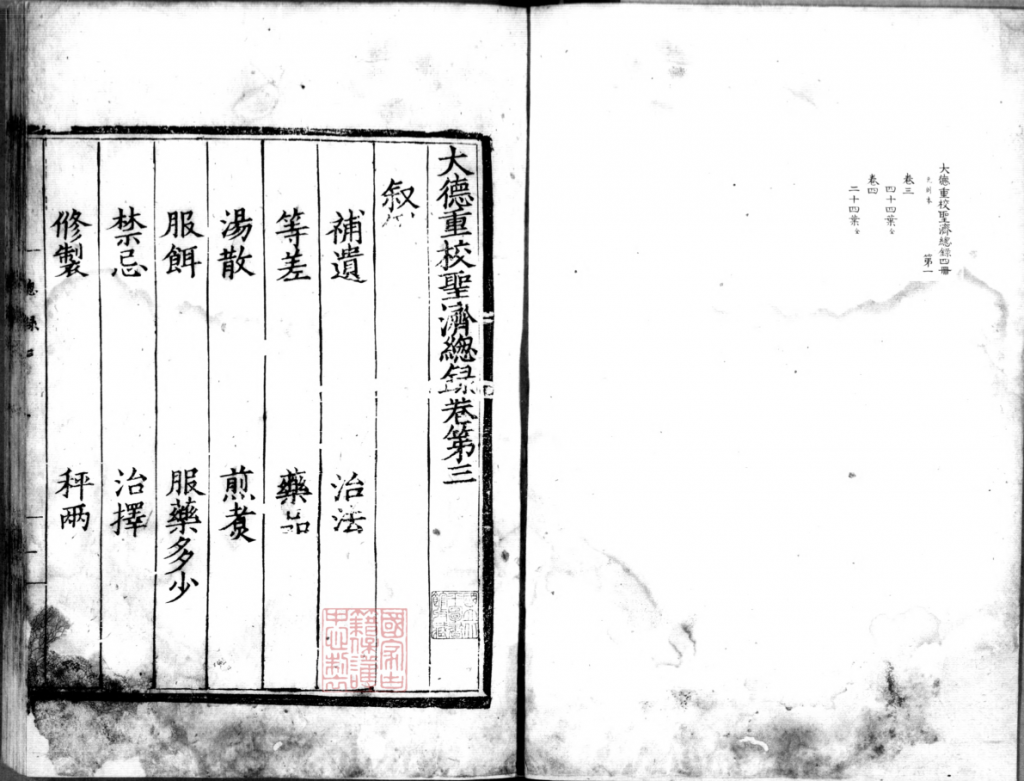 大德重校聖濟總錄四冊 第一
元刻本
卷三
四十四葉全
卷四
二十四葉全
大德重校聖濟總録卷第三
叙例
補遺 治法
等差 藥品
湯散 煎煑
服餌 服藥多少
禁忌 治擇
修製 秤兩